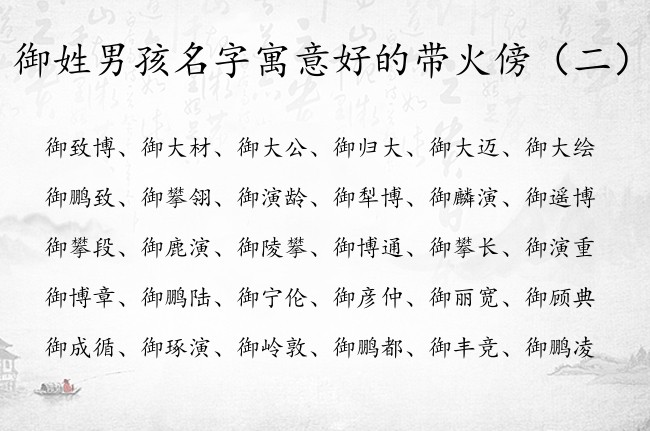 御姓男孩名字寓意好的带火傍（二）
御致博、御大材、御大公、御归大、御大迈、御大绘
御鹏致、御攀翎、御演龄、御犁博、御麟演、御遥博
御攀段、御鹿演、御陵攀、御博通、御攀长、御演重
御博章、御鹏陆、御宁伦、御彦仲、御丽宽、御顾典
御成循、御琢演、御岭敦、御鹏都、御丰竞、御鹏凌